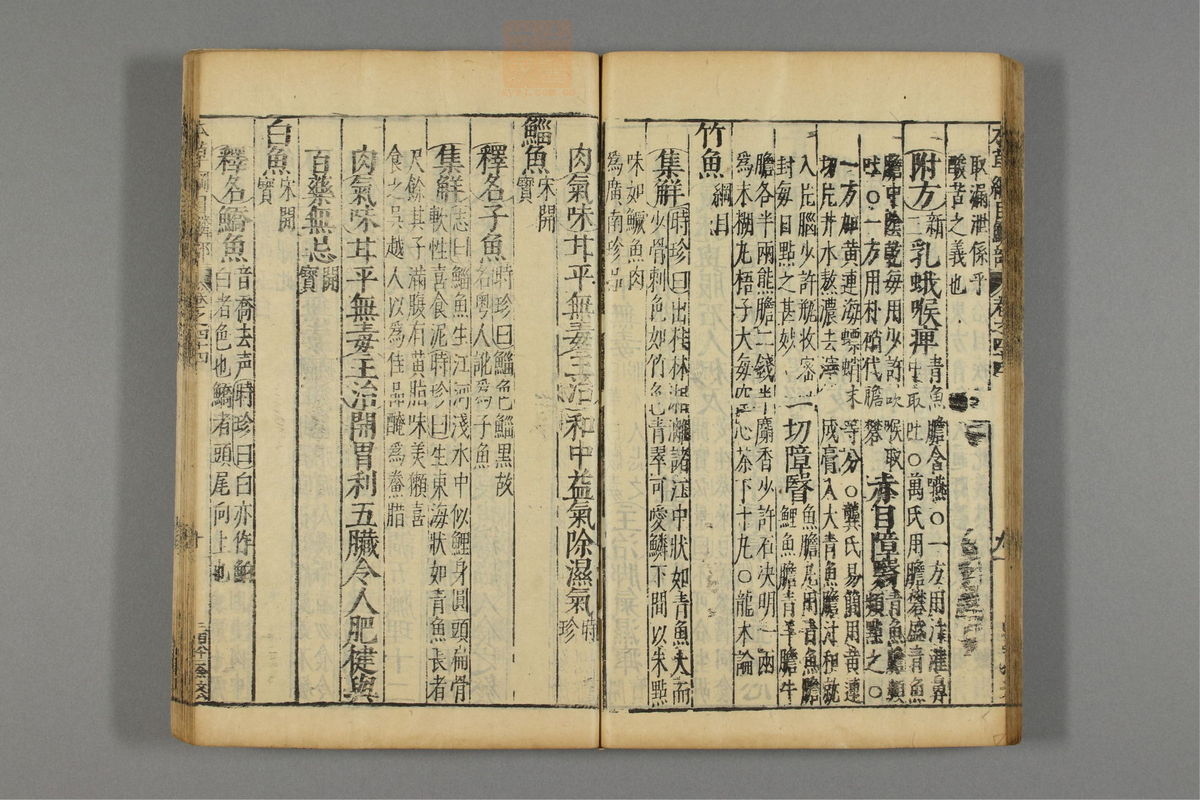 取漏泄係乎
酸苦之義也
附方新三乳蛾喉痺青魚膽含嚥○一方用汁灌鼻
中取吐○萬氏用膽礬盛青魚
膽中陰乾每用少許吹喉取
吐○一方用朴硝代膽礬赤目障翳青魚膽頻頻點之○
一方加黄連海螵蛸末等分○龔氏易簡用黄連
切片井水熬濃去滓待成膏入大青魚膽汁和就
入片腦少許瓶收密
封每日點之甚妙一切障瞖魚膽丸用青魚膽
鯉魚膽青羊膽牛
膽各半兩熊膽二錢半麝香少許石决明一兩
為末糊丸梧子大每空心茶下十丸○龍木論
竹魚綱目
集解時珍曰出桂林湘灕諸江中狀如青魚大而
少骨刺色如竹色青翠可愛鱗下間以朱點
味如鱖魚肉
為廣南珍品
肉氣味甘平無毒主治和中益氣除濕氣時珍
鯔魚宋開寶
釋名子魚時珍曰鯔色鯔黑故
名粵人訛爲子魚
集解志曰鯔魚生江河淺水中似鯉身圓頭扁骨
軟性喜食泥時珍曰生東海狀如青魚長者
尺餘其子滿腹有黄脂味美獺喜
食之吳越人以爲佳品醃爲鮝腊
肉氣味甘平無毒主治開胃利五臟令人肥健與
百藥無忌開寶
白魚宋開寶
釋名鱎魚音喬去声時珍曰白亦作鮊
白者色也鱎者頭尾向上也